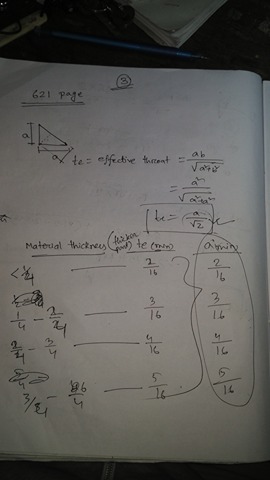 3
621 page
a
a
te = effective throat = ab / √a²+b²
= a² / √a²+a²
te = a / √2
Material thickness (thicker part) te (min) a min
< 1/4 — 2/16 2/16
1/4 - 2/4 — 3/16 3/16
2/4 - 3/4 — 4/16 4/16
3/4 - 6/4 — 5/16 5/16